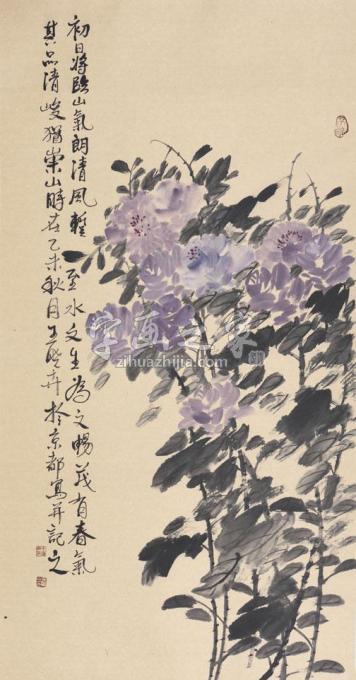 初日將臨山氣朗清風暫至水文生為文暢茂有春氣
其品清峻猶崇山時在乙未秋月於京都寫并記之
字画之家
zihuazhijia.com